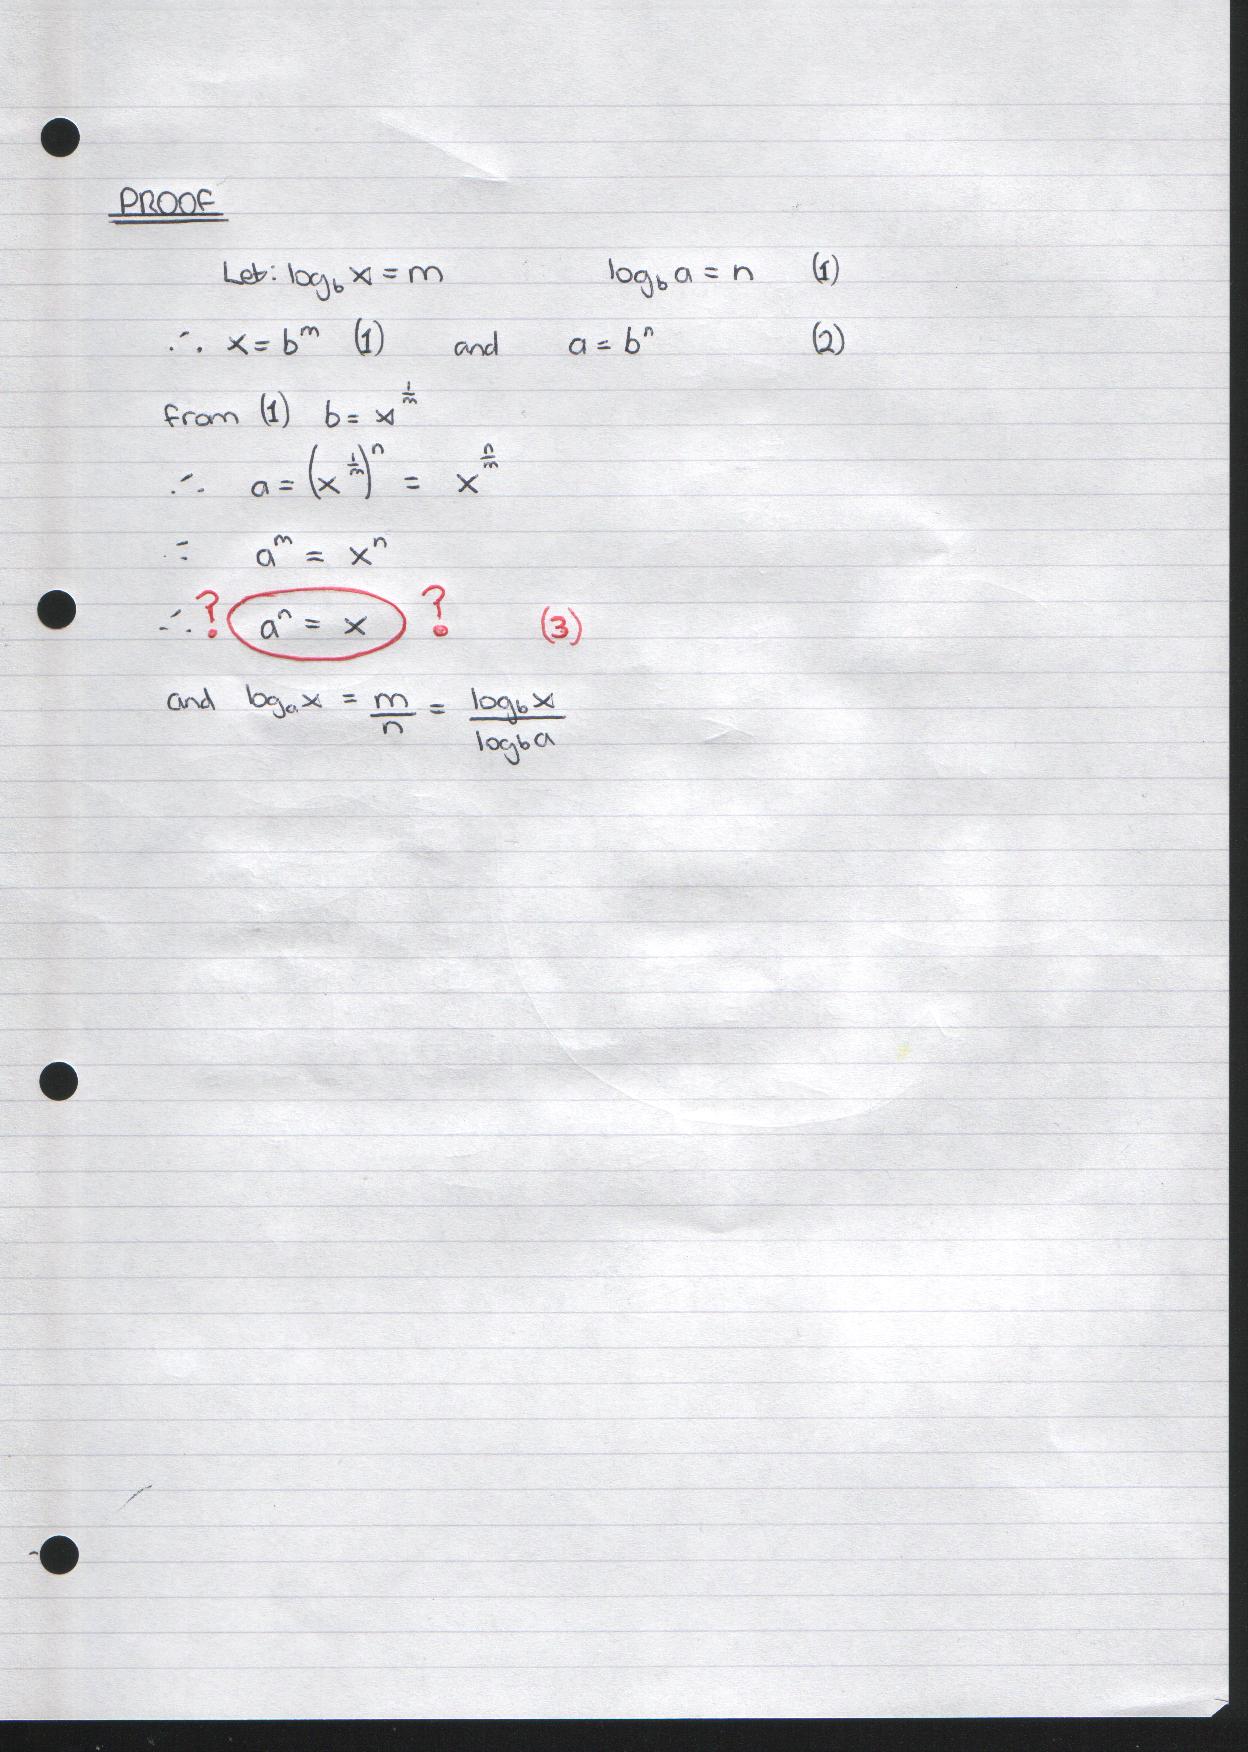 PROOF
Let: log_b x = m log_b a = n (1)
∴ x = b^m (1) and a = b^n (2)
from (1) b = x^(1/m)
∴ a = (x^(1/m))^n = x^(n/m)
∴ a^m = x^n
∴ ? a^n = x ? (3)
and log_a x = m/n = log_b x / log_b a